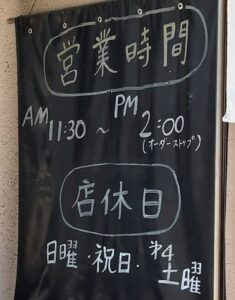 営業時間
AM 11:30 ~ PM 2:00
(オーダーストップ)
店休日
日曜・祝日・第4
土曜